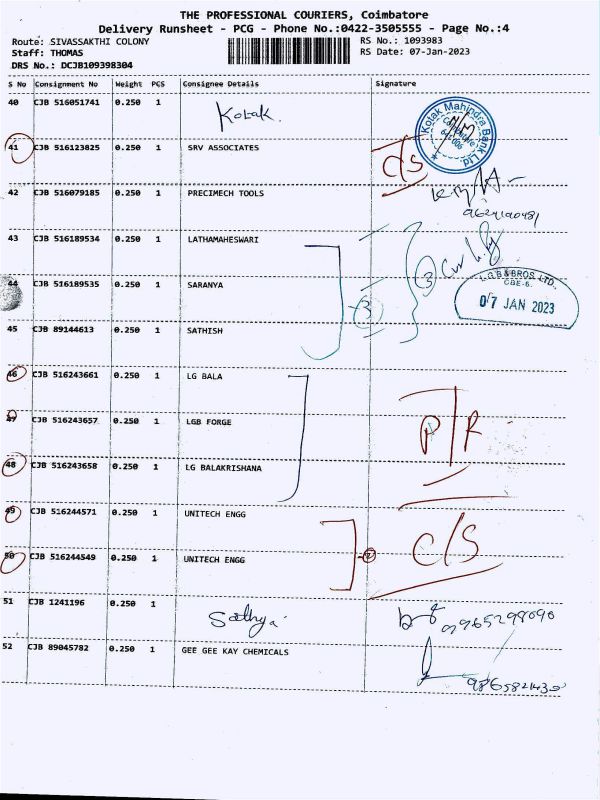 THE PROFESSIONAL COURIERS, Coimbatore
Delivery Runsheet - PCG - Phone No.:0422-3505555 - Page No.:4
Route: SIVASSAKTHI COLONY
Staff: THOMAS
DRS No.: DCJB109398304
RS No.: 1093983
RS Date: 07-Jan-2023
S No Consignment No Weight PCS Consignee Details Signature
40 CJB 516051741 0.250 1 Kotak.
Kotak Mahindra Bank Ltd.
41 CJB 516123825 0.250 1 SRV ASSOCIATES C/S
42 CJB 516079185 0.250 1 PRECIMECH TOOLS
43 CJB 516189534 0.250 1 LATHAMAHESWARI
44 CJB 516189535 0.250 1 SARANYA 3 3
L.G.B & BROS. LTD.
CBE-6.
07 JAN 2023
45 CJB 89144613 0.250 1 SATHISH
46 CJB 516243661 0.250 1 LG BALA
47 CJB 516243657 0.250 1 LGB FORGE P/R
48 CJB 516243658 0.250 1 LG BALAKRISHANA
49 CJB 516244571 0.250 1 UNITECH ENGG
50 CJB 516244549 0.250 1 UNITECH ENGG C/S
51 CJB 1241196 0.250 1 Sathya. 9965298090
52 CJB 89045782 0.250 1 GEE GEE KAY CHEMICALS